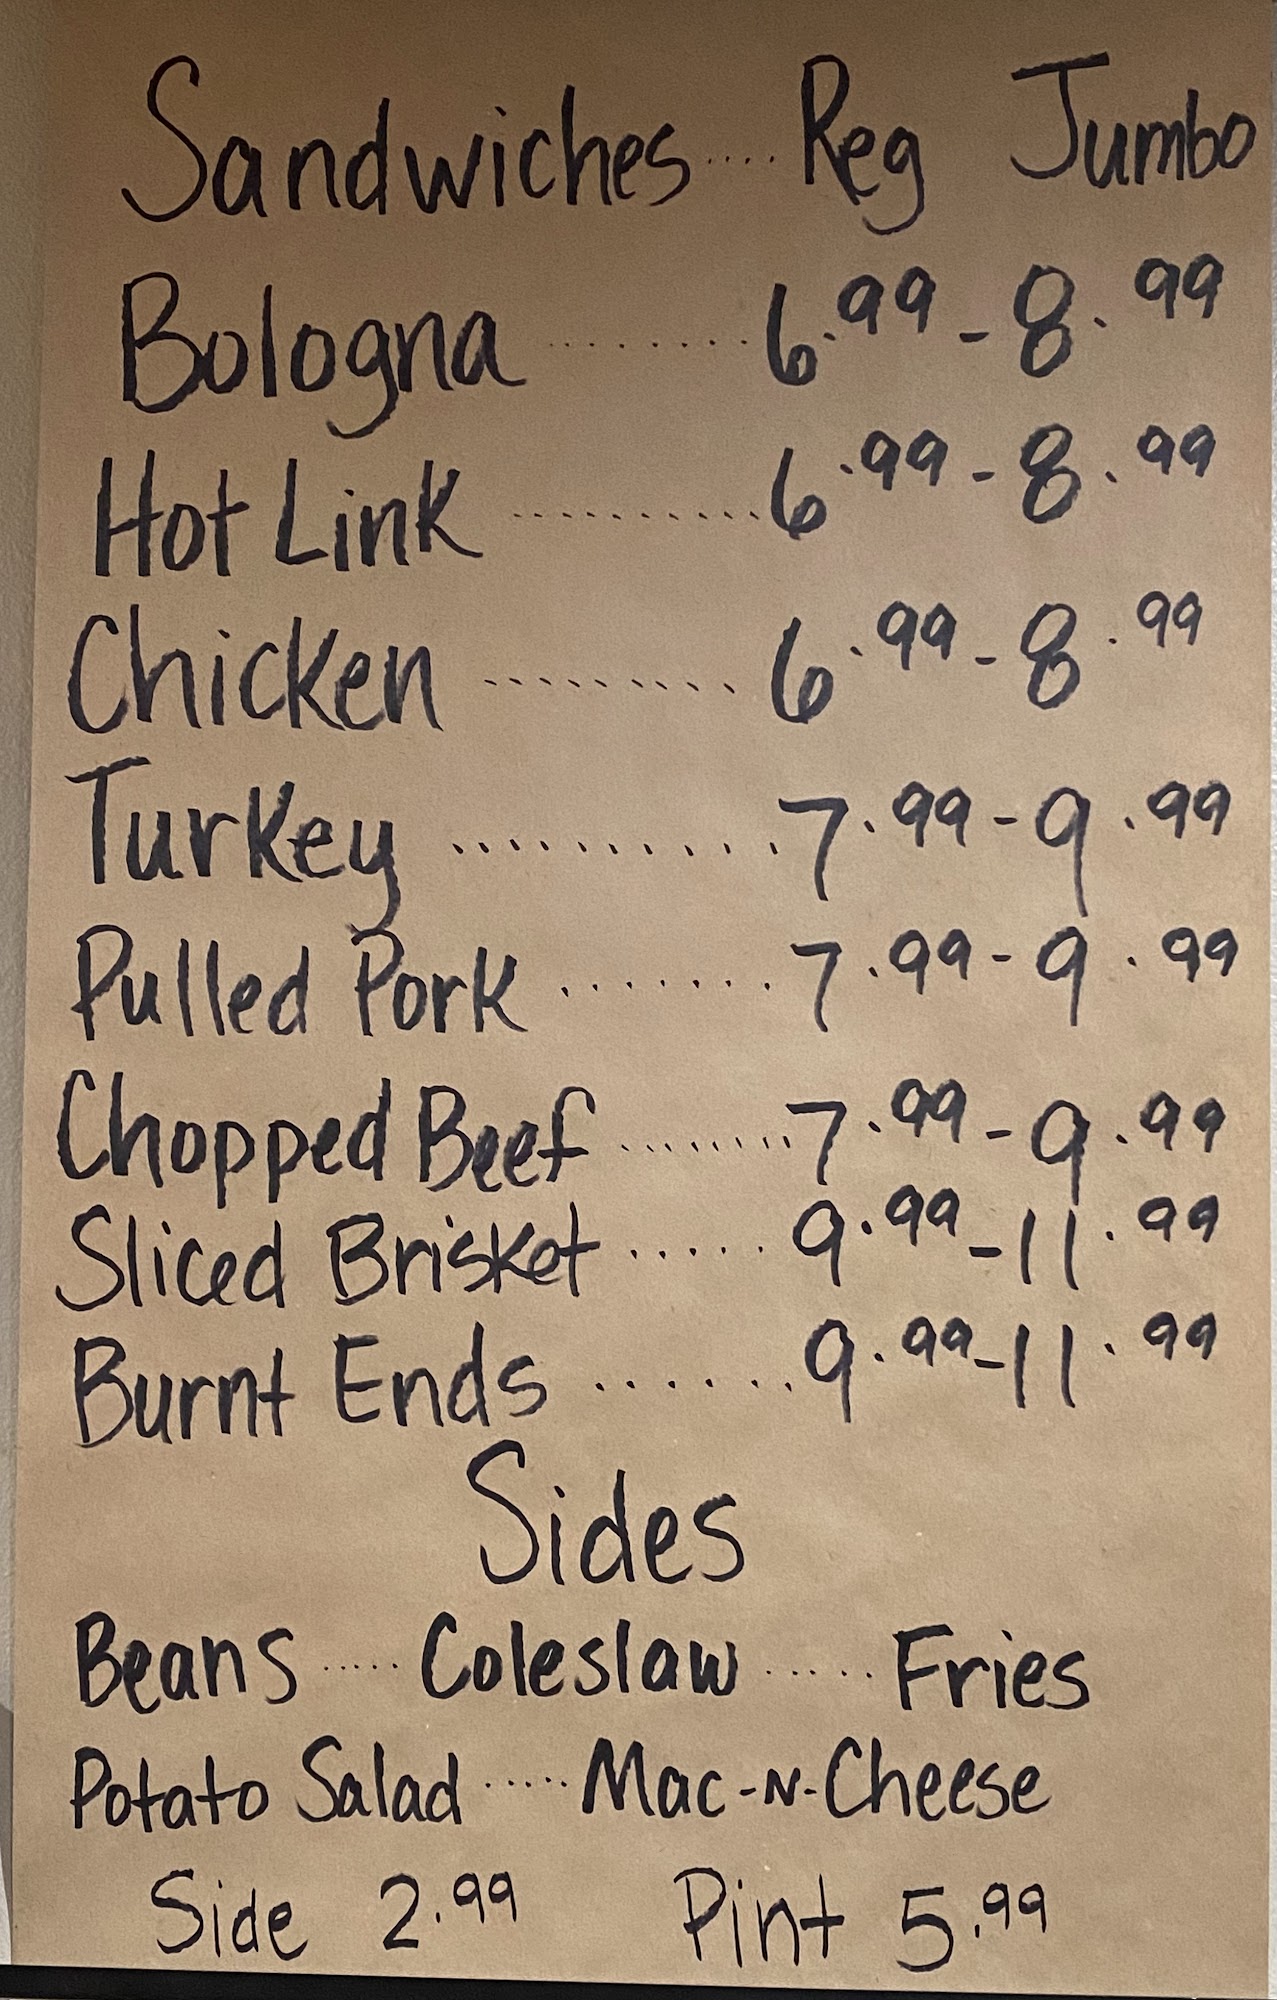 Sandwiches .... Reg Jumbo
Bologna ......... 6.99 - 8.99
Hot Link ........... 6.99 - 8.99
Chicken ......... 6.99 - 8.99
Turkey ........... 7.99 - 9.99
Pulled Pork ....... 7.99 - 9.99
Chopped Beef ......... 7.99 - 9.99
Sliced Brisket ..... 9.99 - 11.99
Burnt Ends ....... 9.99 - 11.99
Sides
Beans ..... Coleslaw ..... Fries
Potato Salad ..... Mac-N-Cheese
Side 2.99 Pint 5.99